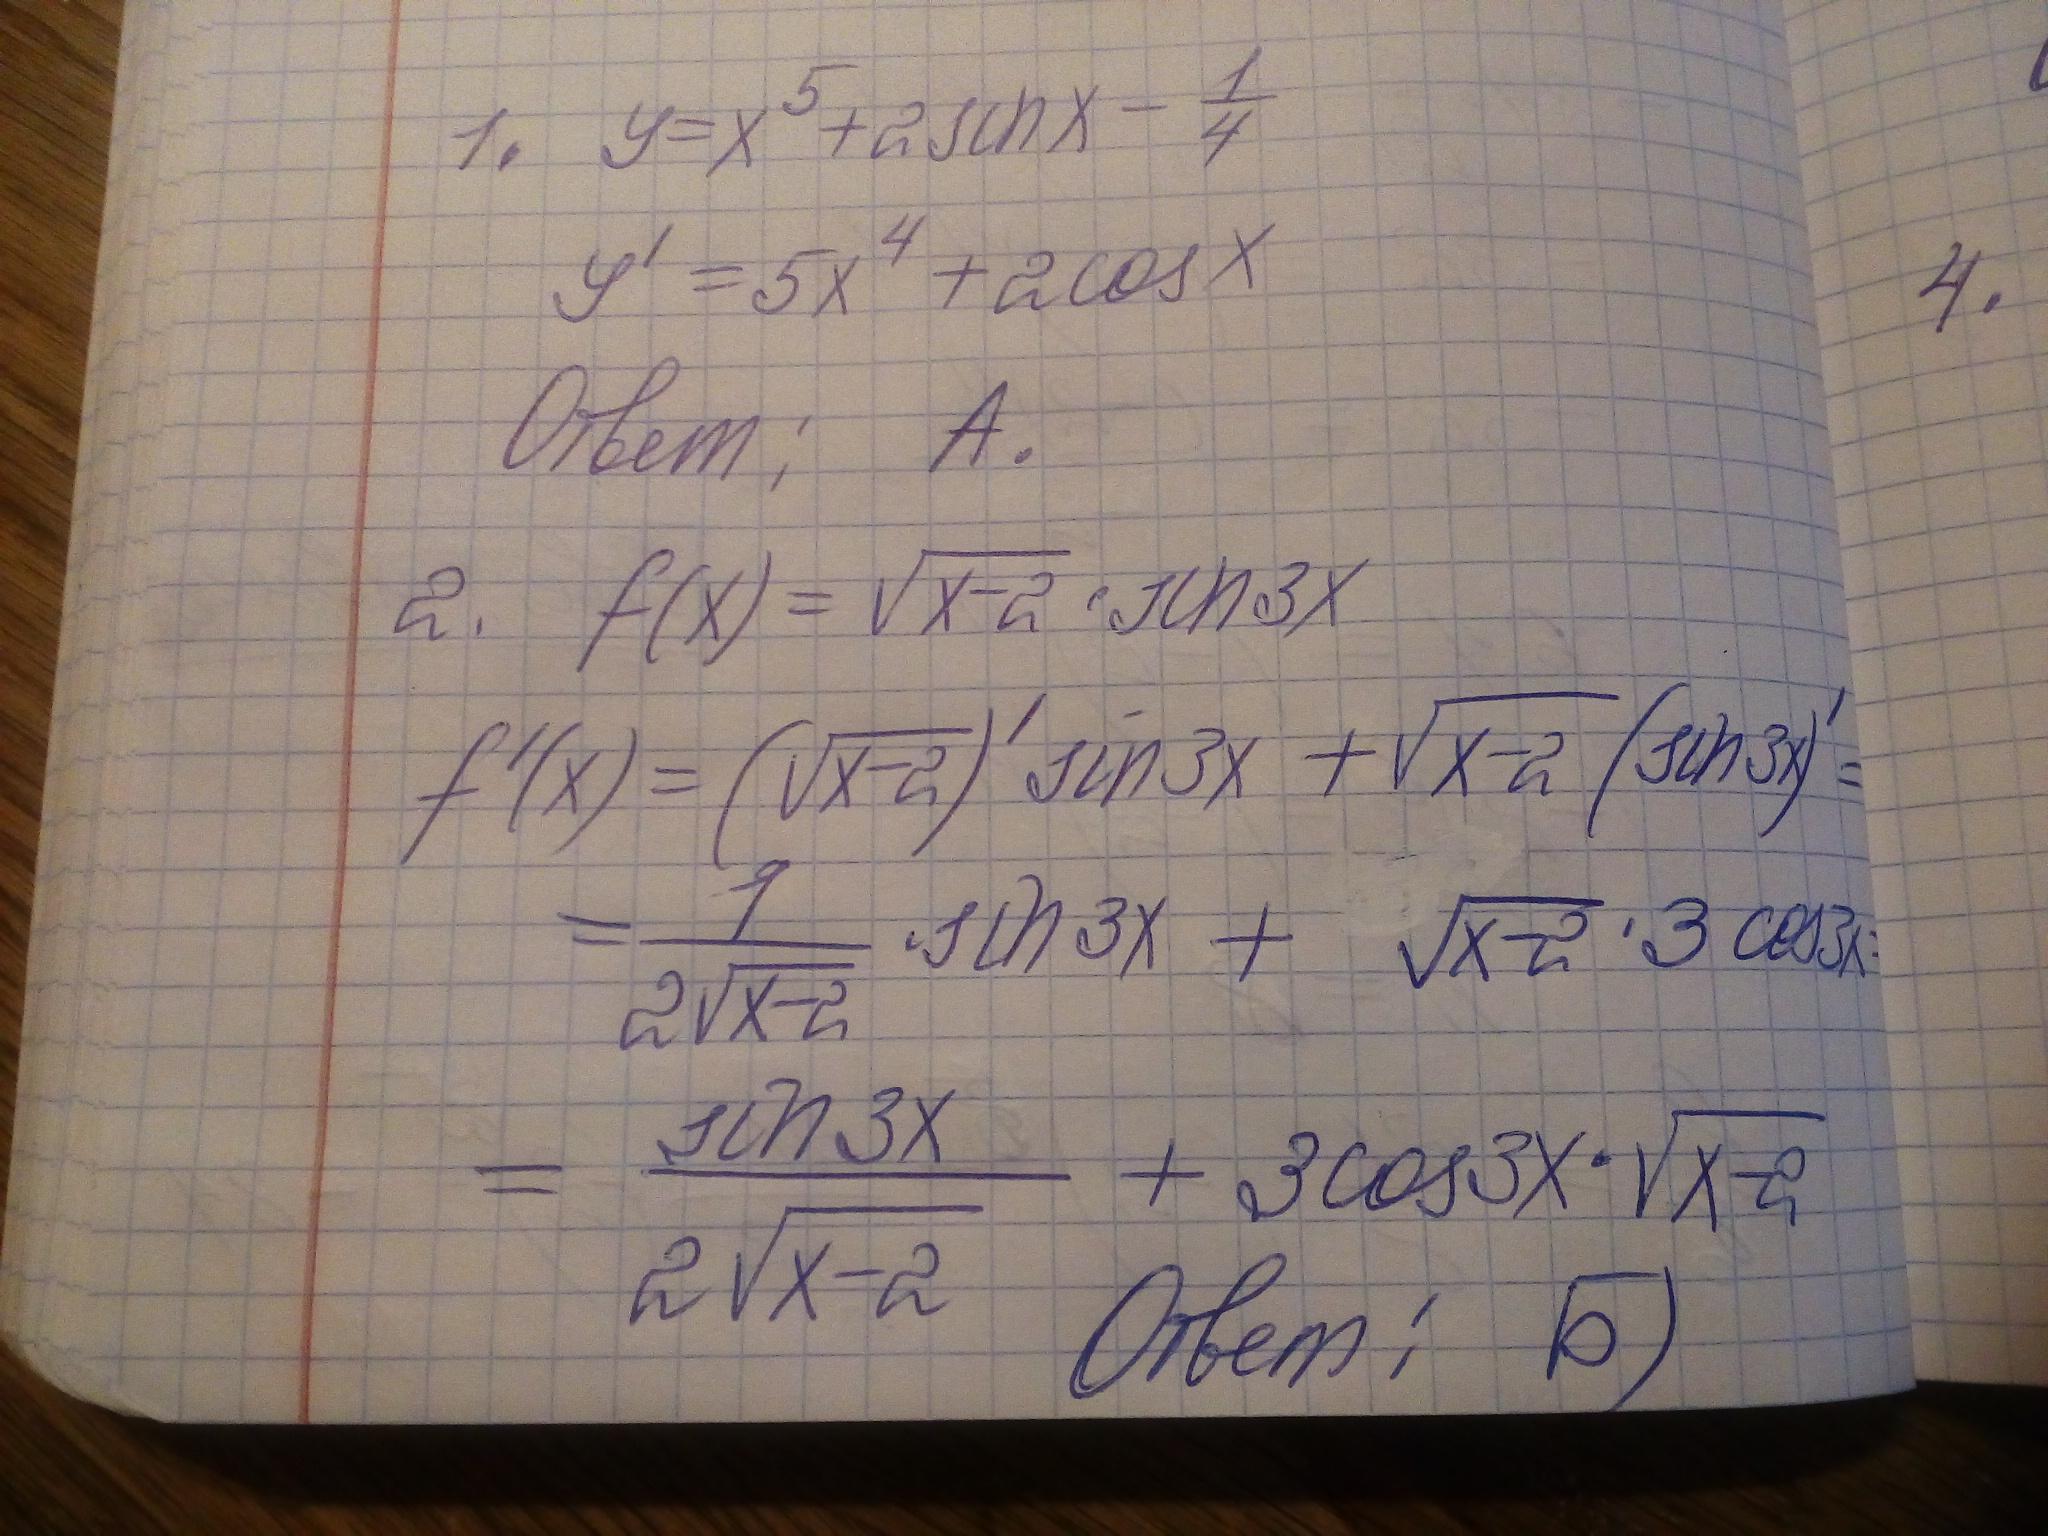 1. y=x⁵+2sinx-1/4
y' =5x⁴+2cosx
Ответ: А.
2. f(x)=√(x-2)·sin3x
f'(x)=(√(x-2))'sin3x+√(x-2)(sin3x)'=
=1/(2√(x-2))·sin3x+√(x-2)·3cos3x=
4.
=sin3x/(2√(x-2))+3cos3x·√(x-2)
Ответ: Б)